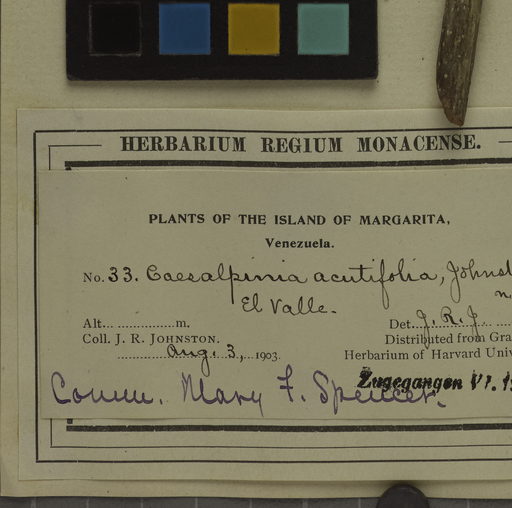 HERBARIUM REGIUM MONACENSE.
PLANTS OF THE ISLAND OF MARGARITA,
Venezuela.
No. 33. Caesalpinia acutifolia, Johnst
n
El Valle.
Alt. m. Det. J. R. J.
Coll. J. R. JOHNSTON. Distributed from Gra
Aug. 3, 1903. Herbarium of Harvard Univ
Zugegangen VI.
Comm. Mary F. Spencer.